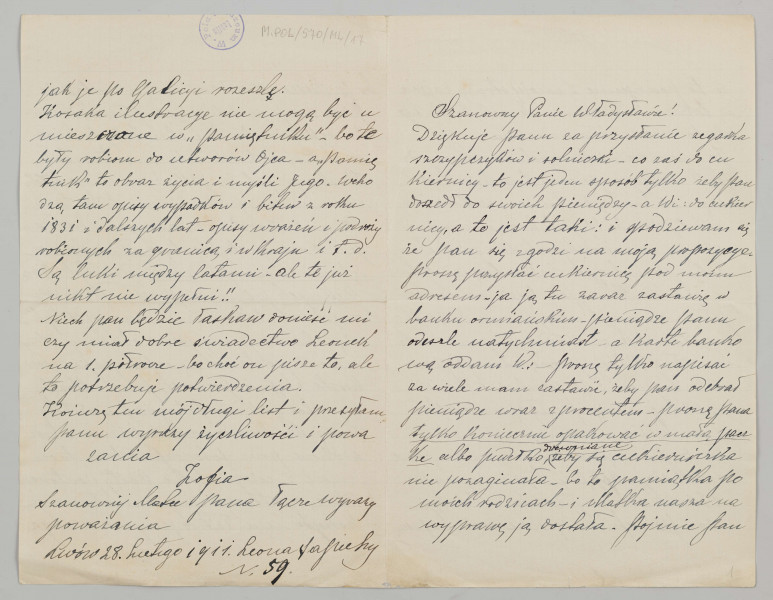 M.POL/570/ML/11
Szanowny Panie Władysławie!
Dziękuję panu za przysłanie zegarka
szczypczyków i solniczki – co zaś do cu
kiernicy – to jest jeden sposób tylko żeby pan
doszedł do swoich pieniędzy – a Wł: do cukier
nicy, a to jest taki: i spodziewam się
że pan się zgodzi na moją propozycyę –
Proszę przysłać cukiernicę pod moim
adresem – ja ją tu zaraz zastawię w
banku ormiańskim – pieniądze panu
odeszlę natychmiast – a kartę banko
wą oddam – Proszę tylko napisać
za wiele mam zastawić, żeby pan odebrał
pieniądze wraz z procentem – proszę pana
tylko koniecznie opakować w małą pacz
kę albo pudełko drewniane żeby ta cukierniczka
nie pozaginała – bo to pamiątka po
moich rodzicach – i Matka nasza na
wyprawę ją dostała – Pojmie pan
jak je po Galicyi rozeszlę.
Kosaka ilustracye nie mogą być u
mieszczone w „pamiętniku" – bo te
były robione do utworów Ojca – a „Pamię
tnik" to obraz życia i myśli Jego – wcho
dzą tam opisy wypadków i bitew z roku
1831 i dalszych lat – opisy wrażeń i podróży
robionych za granicą i w kraju i t. d.
Są luki między latami – ale te już
nikt nie wypełni!!
Niech pan będzie łaskaw donieść mi
czy miał dobre świadectwo Leonek
na 1. półrocze – bo choć on pisze to, ale
to potrzebuje potwierdzenia.
Kończę ten mój długi list i przesyłam
panu wyrazy życzliwości i powa
żania
Zofia
Szanownej Matce pana łączę wyrazy
poważania
Lwów 28. Lutego 1911. Leona Sapiehy
N. 59.